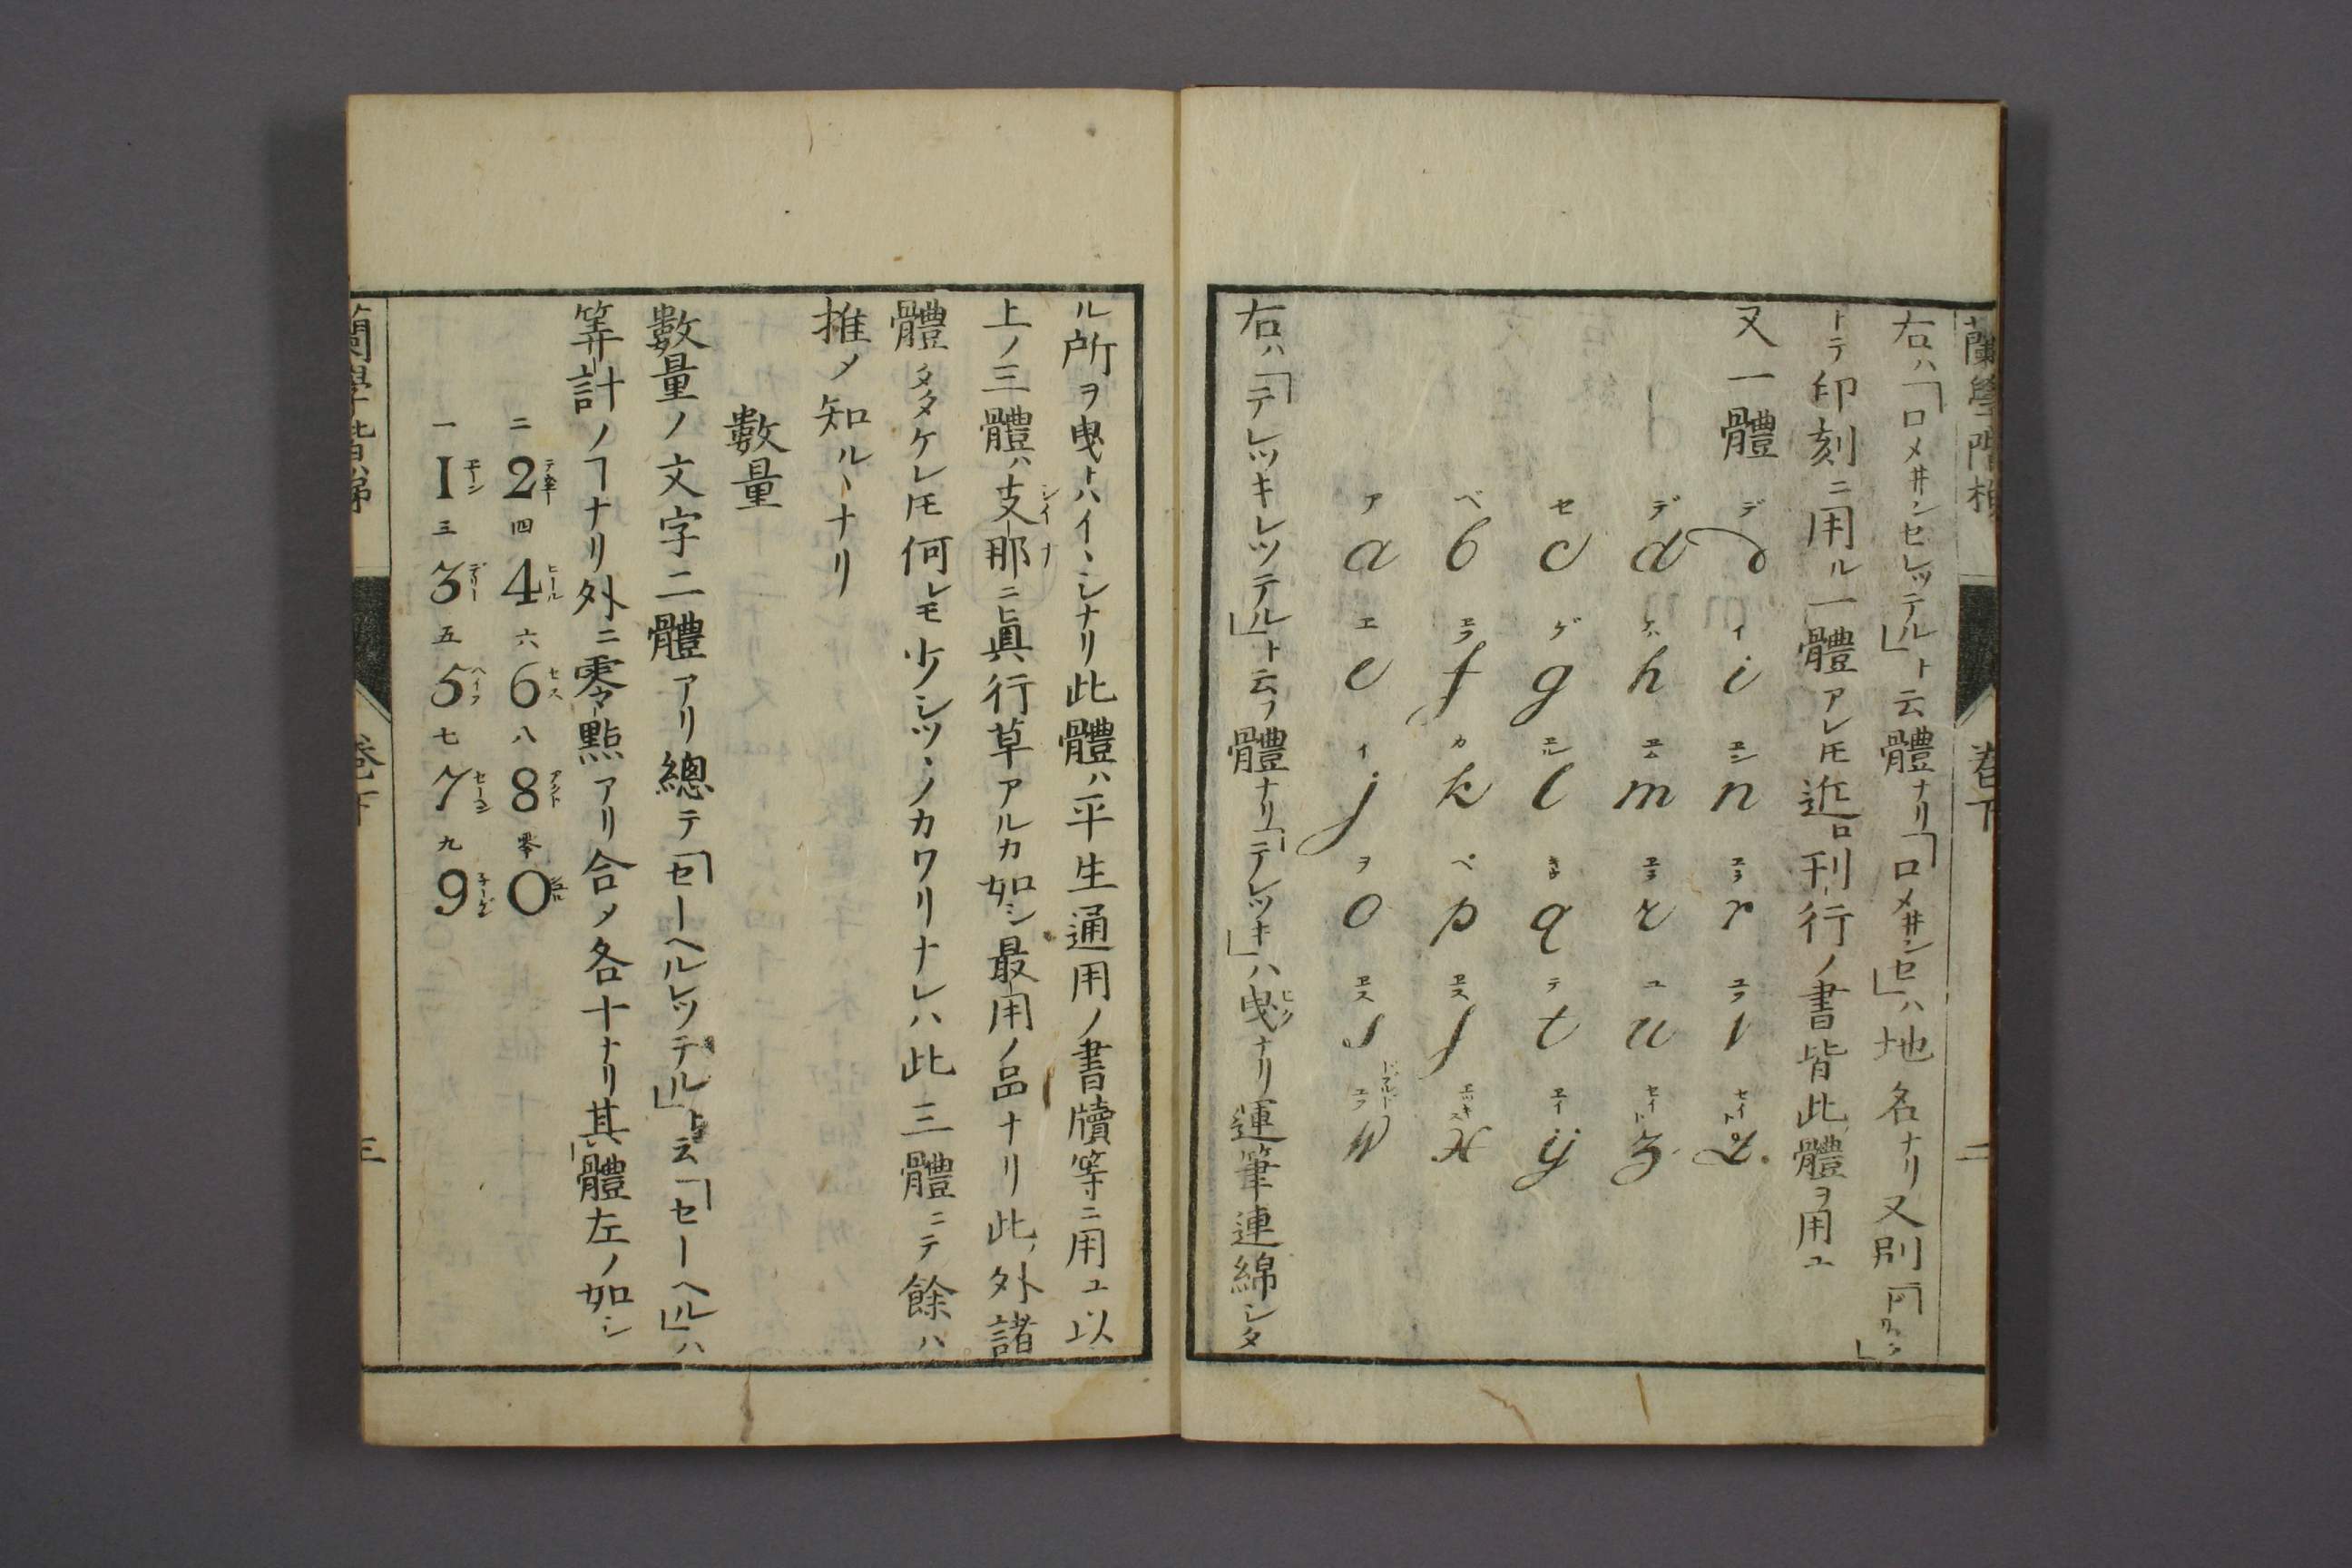 蘭學階梯 卷下 二
右ハ「ロメヰンセレッテル」ト云體ナリ「ロメヰンセ」ハ地名ナリ又別
トテ印刻ニ用ル一體アレ𪜈近ロ刊行ノ書皆此體ヲ用ユ
又一體
ア a ベ b セ c デ d デ d
エ e ヱフ f ゲ g ハ h イ i
イ j カ k ヱル l ヱム m ヱン n
ヲ o ペ p q ヱラ r ヱラ r
ヱス s ヱス ſ テ t ユ u ユフ v
ドブルドユフ w ヱッキス x ヱイ ij セイト z セイト z
右ハ「テレッキレッテル」ト云フ體ナリ「テレッキ」ハ曳ヒクナリ運筆連綿シタ
ル所ヲ曳トハイヽシナリ此體ハ平生通用ノ書牘等ニ用ユ以
上ノ三體ハ支那シイナニ眞行草アルカ如シ最用ノ品ナリ此外諸
體タタケレ𪜈何レモ少シツヽノカワリナレハ此三體ニテ餘ハ
推メ知ルヽナリ
數量
數量ノ文字二體アリ總テ「セーヘルレッテル」ト云「セーヘル」ハ
筭計ノヿナリ外ニ零點アリ合メ各十ナリ其體左ノ如シ
二 2 四 4 ヒール 六 6 セス 八 8 アクト 零 0 シュル
一 1 エーン 三 3 デリー 五 5 ヘイフ 七 7 セーヘン 九 9 子ーゲン
蘭學階梯 卷下 三